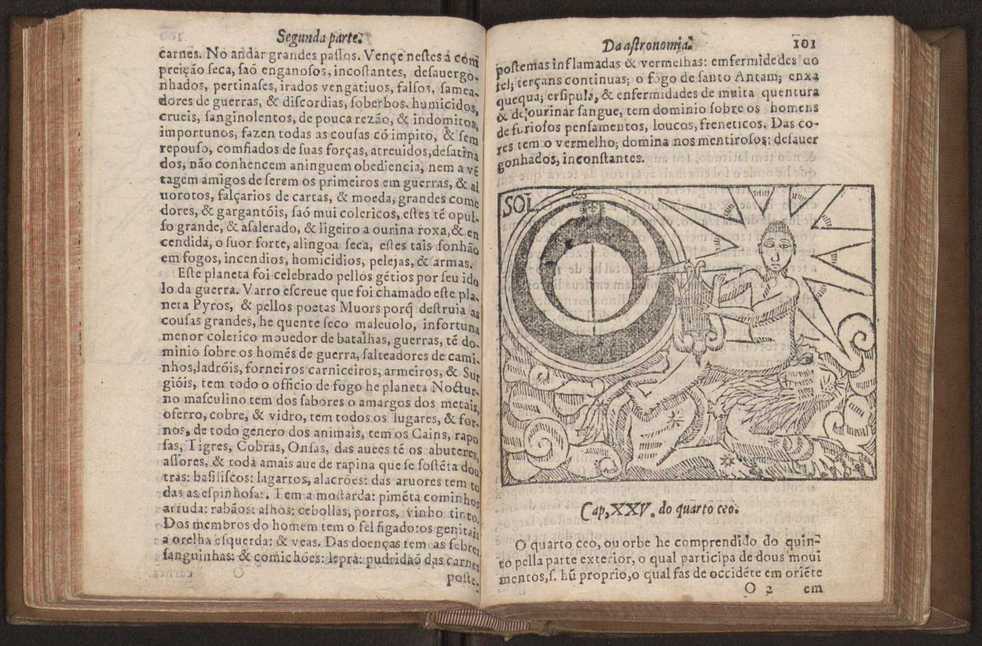 Segunda parte.
carnes. No andar grandes passos. Vençe nestes a com
preição seca, saõ enganosos, incostantes, desauergo-
nhados, pertinases, irados vengatiuos, falsos, samea-
dores de guerras, & discordias, soberbos, humicidos,
crueis, sanginolentos, de pouca rezão, & indomitos,
importunos, fazen todas as cousas cõ impito, & sem
repouso, comfiados de suas forças, atreuidos, desatina
dos, não conhencem aninguem obediencia, nem a vẽ
tagem amigos de serem os primeiros em guerras, & al
uorotos, falçarios de cartas, & moeda, grandes come
dores, & gargantóis, saõ mui colericos, estes tẽ o pul-
so grande, & asalerado, & ligeiro a ourina roxa, & en
cendida, o suor forte, alingoa seca, estes tais sonhão
em fogos, incendios, homicidios, pelejas, & armas.
Este planeta foi celebrado pellos gétios por seu ido
lo da guerra. Varro escreue que foi chamado este pla-
neta Pyros, & pellos poetas Muors porq̃ destruia as
cousas grandes, he quente seco maleuolo, infortuna
menor colerico mouedor de batalhas, guerras, tẽ do-
minio sobre os homẽs de guerra, salteadores de cami-
nhos, ladróis, forneiros carniceiros, armeiros, & Sur
gióis, tem todo o officio de fogo he planeta Noctur-
no masculino tem dos sabores o amargos dos metais,
oferro, cobre, & vidro, tem todos os lugares, & for-
nos, de todo genero dos animais, tem os Cains, rapo
sas, Tigres, Cobras, Onsas, das aues té os abuteres,
assores, & toda amais aue de rapina que se sostẽta dou
tras: basiliscos: lagartos, alacrões: das aruores tem to
das as espinhosas. Tem a mostarda: pimẽta cominhos
arruda: rabãos: alhos: cebollas, porros, vinho tinto.
Dos membros do homem tem o fel figado: os genitais
a orelha esquerda: & veas. Das doenças tem as febres
sanguinhas: & comichões: lepra: pudridaõ das carnes
O
poste-
Da astronomia.
101
postemas inflamadas & vermelhas: emfermidedes do
fel; terçans continuas; o fogo de santo Antam; enxa
quequa; ersipula, & enfermidades de muita quentura
& de ourinar sangue, tem dominio sobre os homens
de furiosos pensamentos, loucos, freneticos. Das co-
res tem o vermelho; domina nos mentirosos; desauer
gonhados, inconstantes.
SOL
Cap, XXV. do quarto ceo.
O quarto ceo, ou orbe he comprendido do quin-
to pella parte exterior, o qual participa de dous moui
mentos, s. hũ proprio, o qual fas de occidẽte em oriẽte
O 2
em